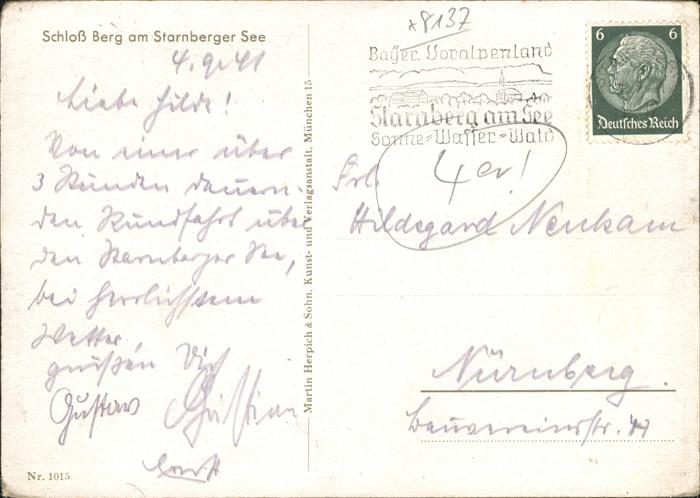 Schloß Berg am Starnberger See
4.9.41
Liebe Hilde!
Von einer über
3 Stunden dauern-
den Rundfahrt über
den Starnberger See,
bei herrlichstem
Wetter,
grüßen Dich
Gustav Christian
Ernst
Nr. 1015
Martin Herpich & Sohn, Kunst- und Verlagsanstalt, München 15
x8137
Bayer. Voralpenland
Starnberg am See
Sonne-Wasser-Wald
6 6
Deutsches Reich
4er!
Frl.
Hildegard Neukam
Nürnberg.
Bauvereinstr. 47